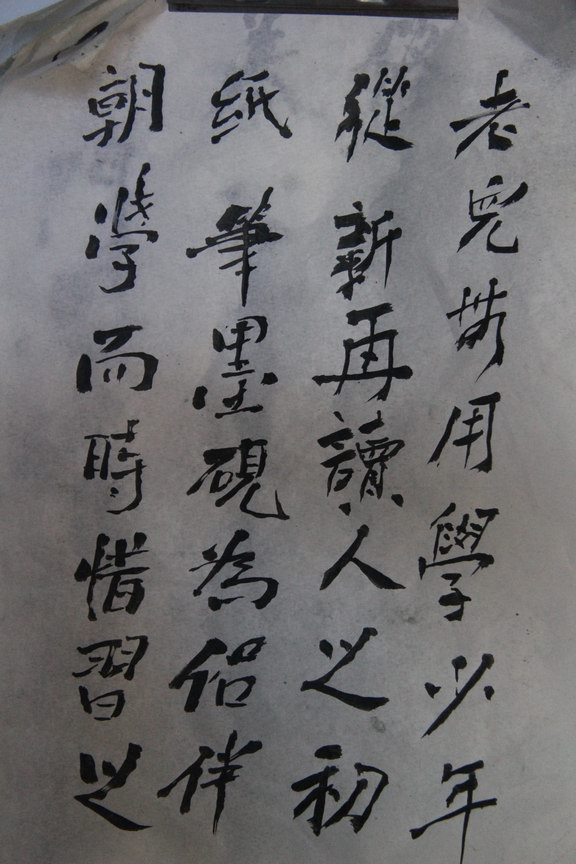 老兒無用學少年
從新再讀人之初
紙筆墨硯為侶伴
朝學而時惜習之